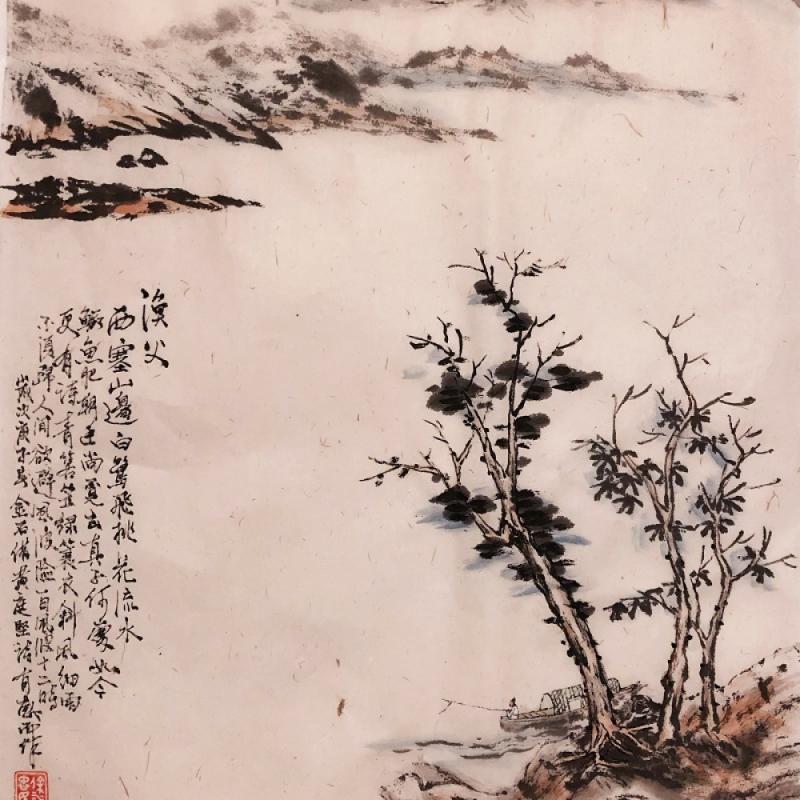 漁父
西塞山邊白鷺飛桃花流水
鱖魚肥朝廷尚覓玄真子何處如今
更有詩青箬笠綠蓑衣斜風細雨
不須歸人間欲避風波險一日風波十二時
歲次庚子 金石 黃庭堅詩有感而作